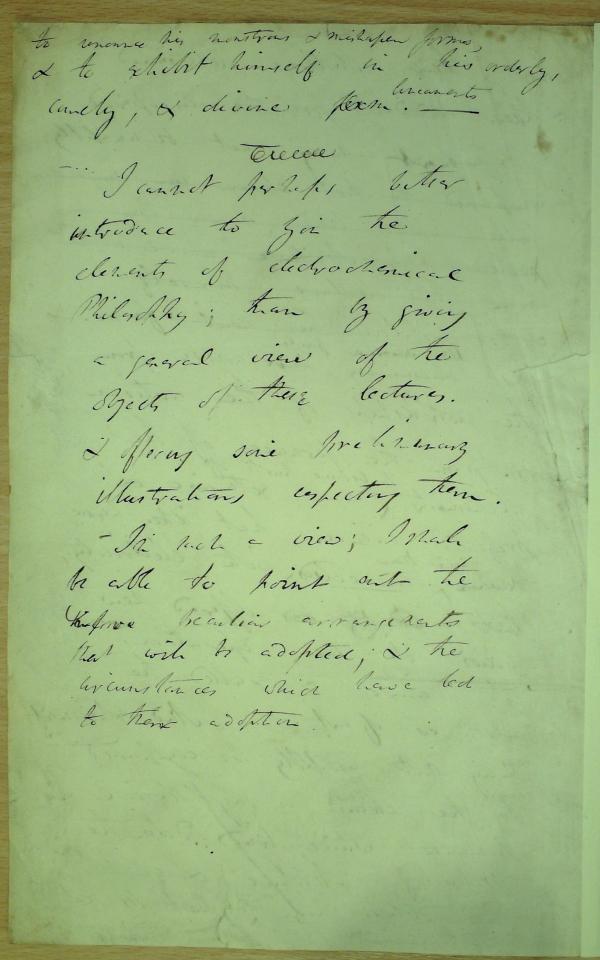 to renounce his monstrous & mishapen forms,
& to exhibit himself in his orderly,
lineaments
comely, & divine form. —
I cannot perhaps better
introduce to you the
elements of electrochemical
Philosophy; than by giving
a general view of the
objects of these lectures.
& offering some preliminary
illustrations respecting them.
- In such a view; I shall
be able to point out the
peculiar arrangements
that will be adopted; & the
circumstances which have led
to their adoption.